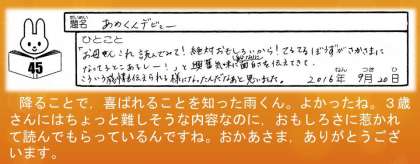 題名 あめくんデビュー
ひとこと
「お母さんこれ読んでみて！絶対おもしろいから！てるてるぼうずがさかさまに
なってるとこあるしー！」と興奮気味に面白さを伝えてきて、
こういう感情も伝えられる様になったんだなあと思いました。
2016年9月20日
45
降ることで，喜ばれることを知った雨くん。よかったね。３歳
さんにはちょっと難しそうな内容なのに，おもしろさに惹かれ
て読んでもらっているんですね。おかあさま，ありがとうござ
います。